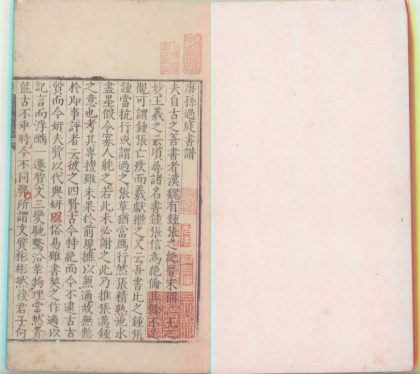 唐孫過庭書譜
夫自古之善書者漢魏有鍾張之絶晉末稱二王之
妙王羲之云頃尋諸名書鍾張信為絶倫其餘不
觀可謂鍾張亡殁而羲獻繼之又云吾書比之鍾張
鍾當抗行或謂過之張草猶當鴈行然張精熟池水
盡墨假令寡人躭之若此未必謝之此乃推張邁鍾
之意也考其專擅雖未果於前規摭以兼通故無慚
於即事評者云彼之四賢古今特絶而今不逮古古
質而今妍夫質以代興妍因俗易雖書契之作適以
記言而淳醨一遷質文三變馳鶩沿革物理常然貴
能古不乖時今不同弊所謂文質彬彬然後君子何